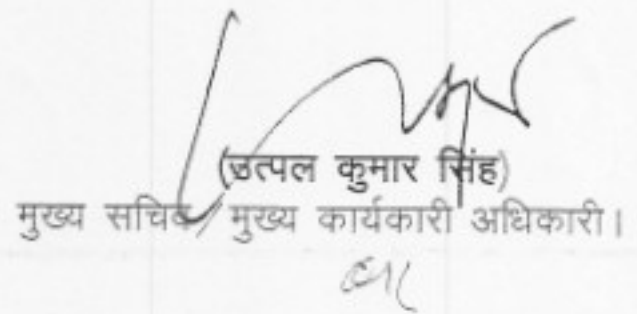 (उत्पल कुमार सिंह)
मुख्य सचिव/ मुख्य कार्यकारी अधिकारी।